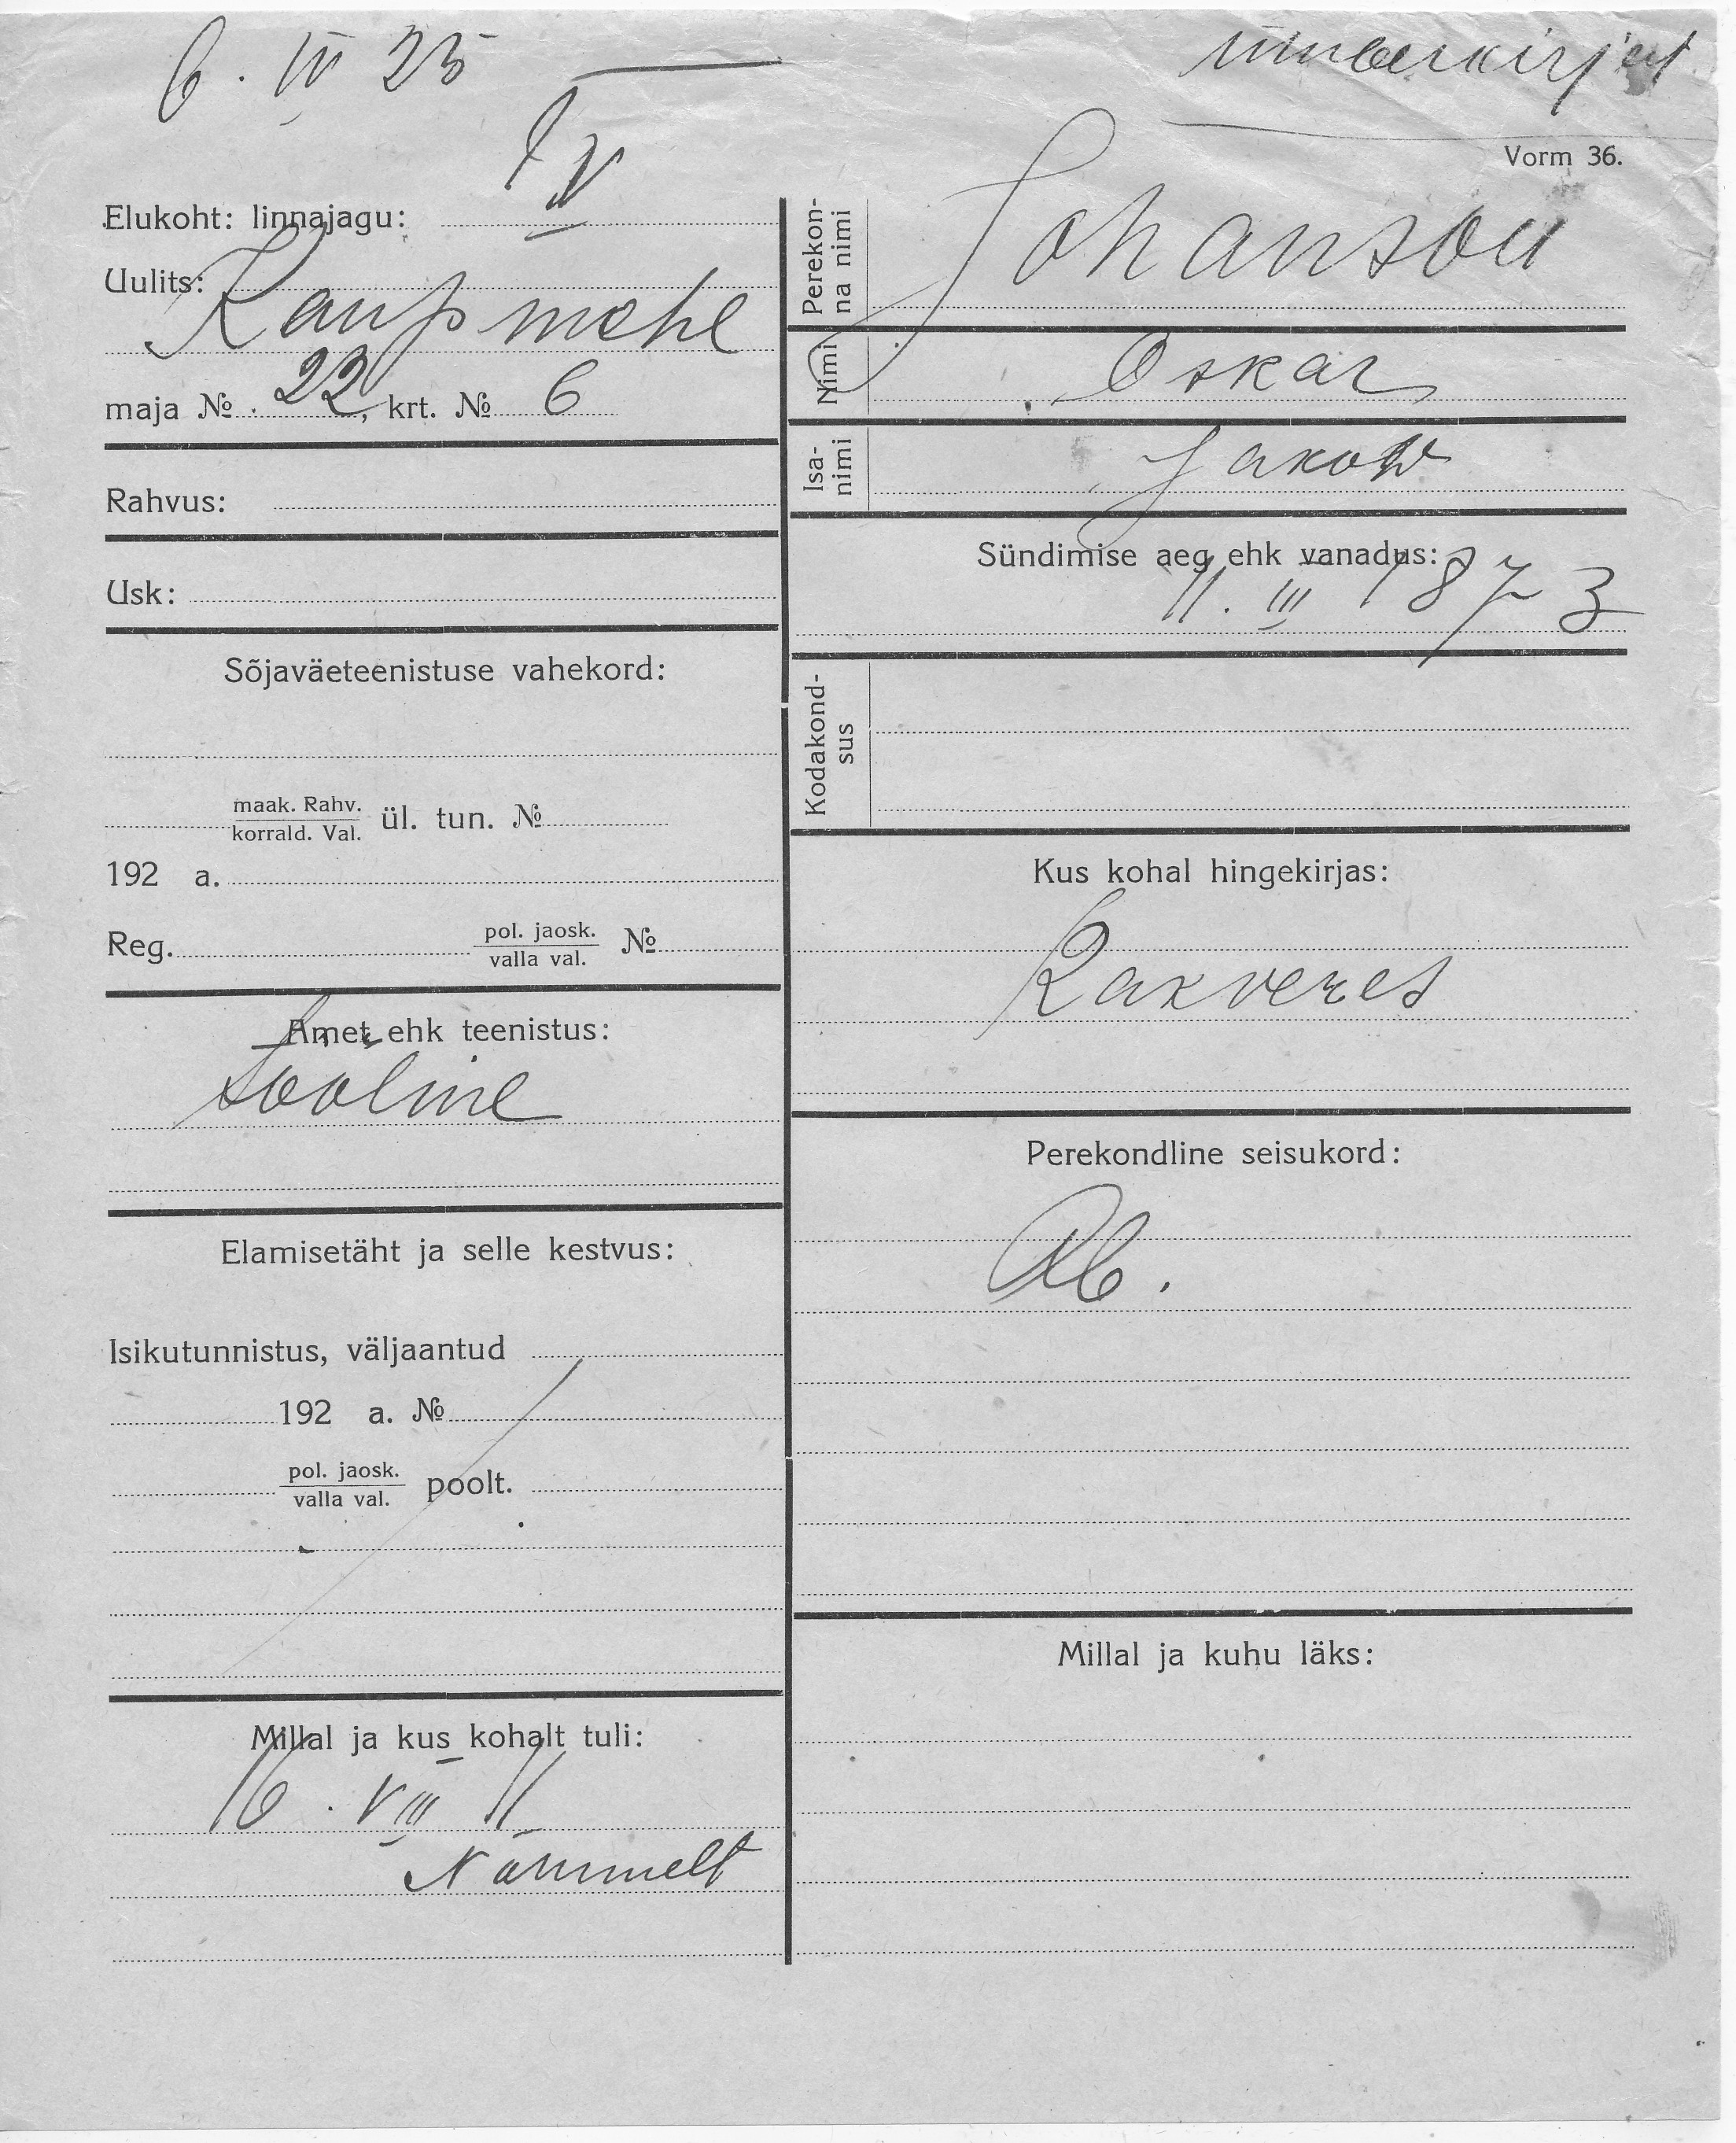 6. IV 23
ümberkirjut
Vorm 36.
Elukoht: linnajagu: IV
Uulits: Kaupmehe
maja № 22, krt. № 6
Rahvus:
Usk:
Sõjaväeteenistuse vahekord:
maak. Rahv.
korrald. Val. ül. tun. №
192 a.
Reg. pol. jaosk.
valla val. №
Amet ehk teenistus:
tööline
Elamisetäht ja selle kestvus:
Isikutunnistus, väljaantud
192 a. №
pol. jaosk.
valla val. poolt.
Millal ja kus kohalt tuli:
16. VIII 11
Nõmmelt
Perekon-
na nimi Johanson
Nimi Oskar
Isa-
nimi Jakob
Sündimise aeg ehk vanadus:
11. III 1873
Kodakond-
sus
Kus kohal hingekirjas:
Rakveres
Perekondline seisukord:
Ab.
Millal ja kuhu läks: